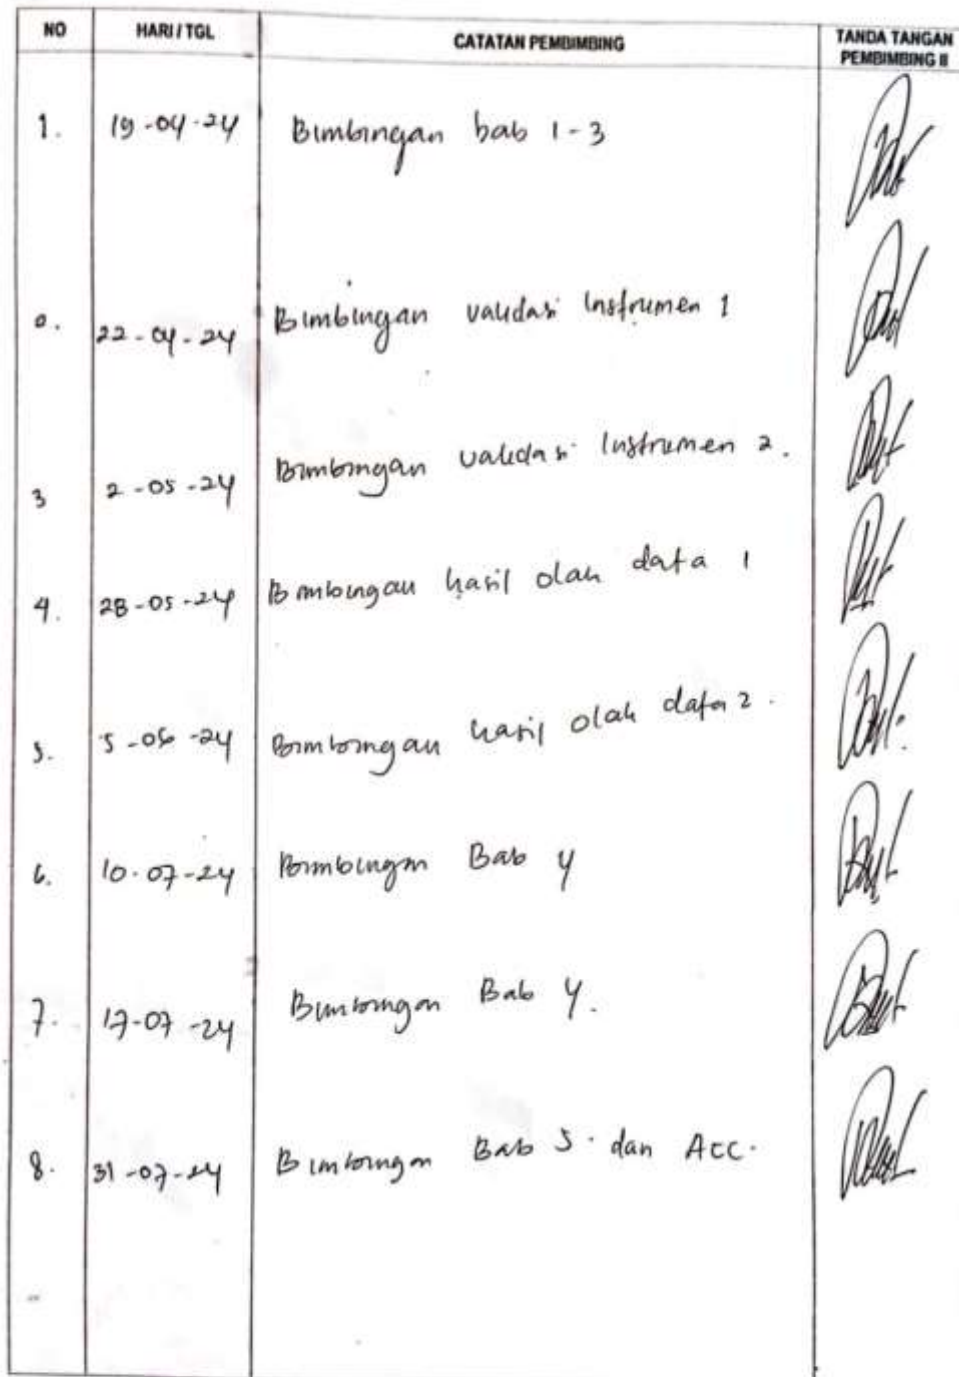 NO HARI / TGL CATATAN PEMBIMBING TANDA TANGAN PEMBIMBING II
1. 19-04-24 Bimbingan bab 1-3
2. 22-04-24 Bimbingan validasi Instrumen 1
3 2-05-24 Bimbingan validasi Instrumen 2.
4. 28-05-24 Bimbingan hasil olah data 1
5. 5-06-24 Bimbingan hasil olah data 2.
6. 10-07-24 Bimbingan Bab 4
7. 17-07-24 Bimbingan Bab 4.
8. 31-07-24 Bimbingan Bab 5 dan Acc.